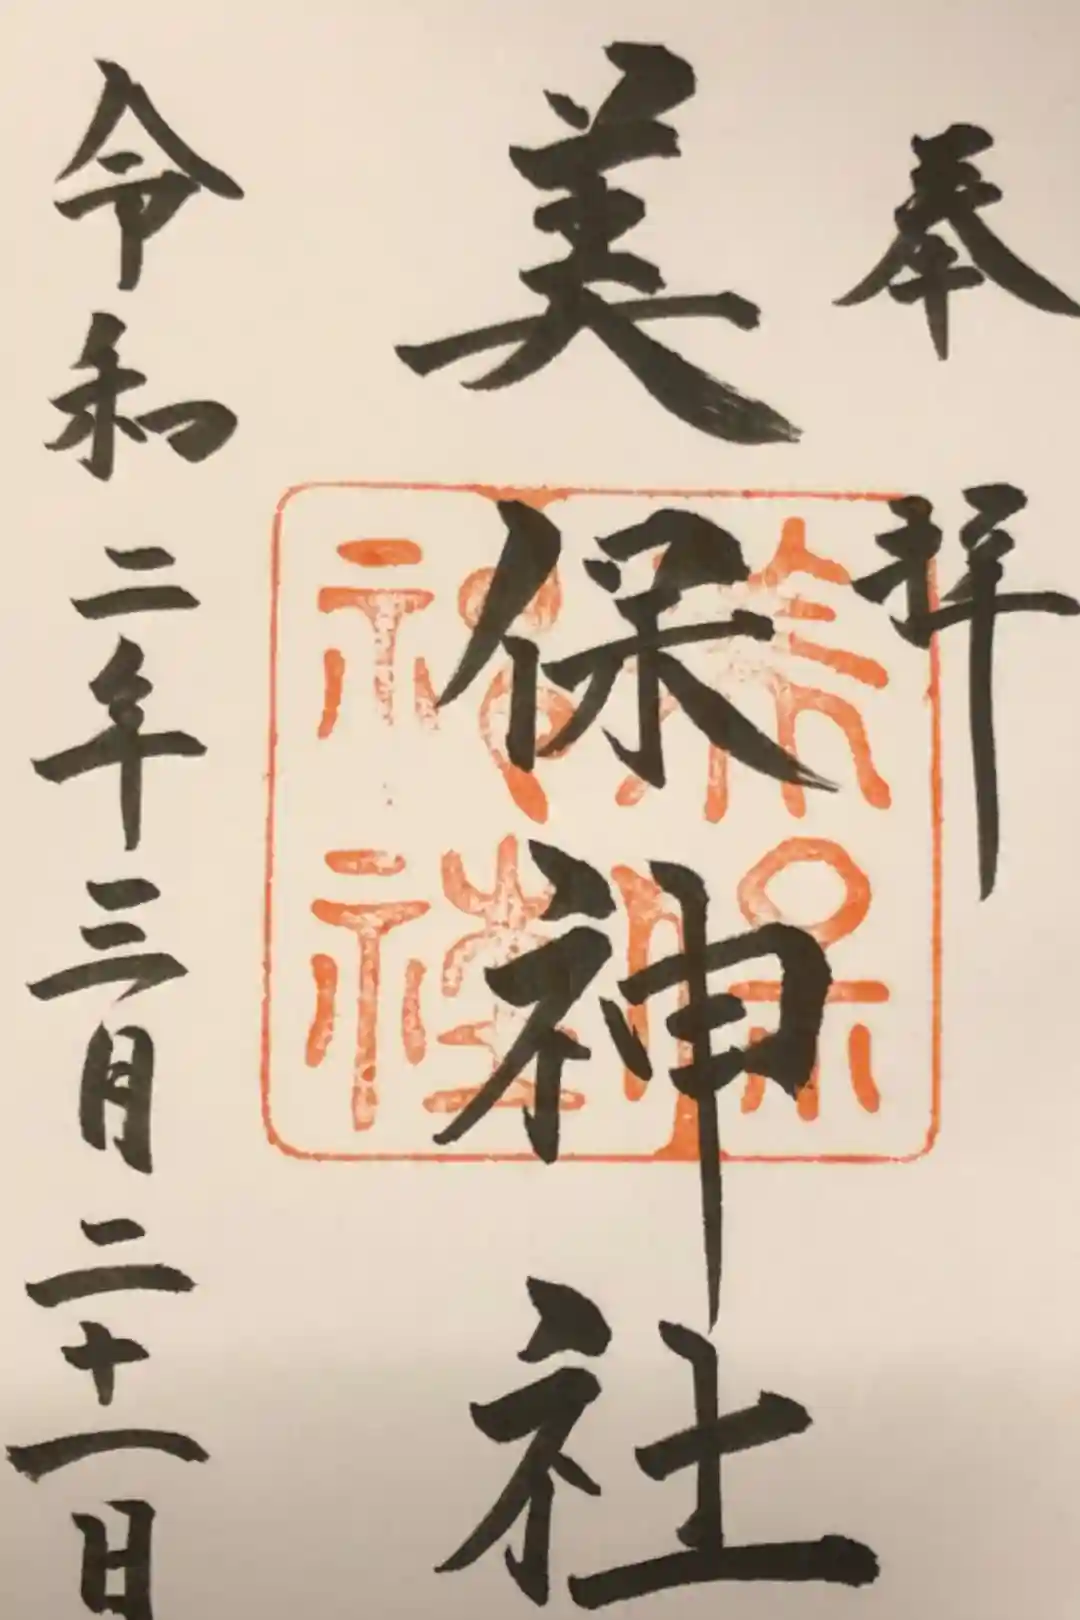 奉拝
美保神社
美保神社
令和二年三月二十一日